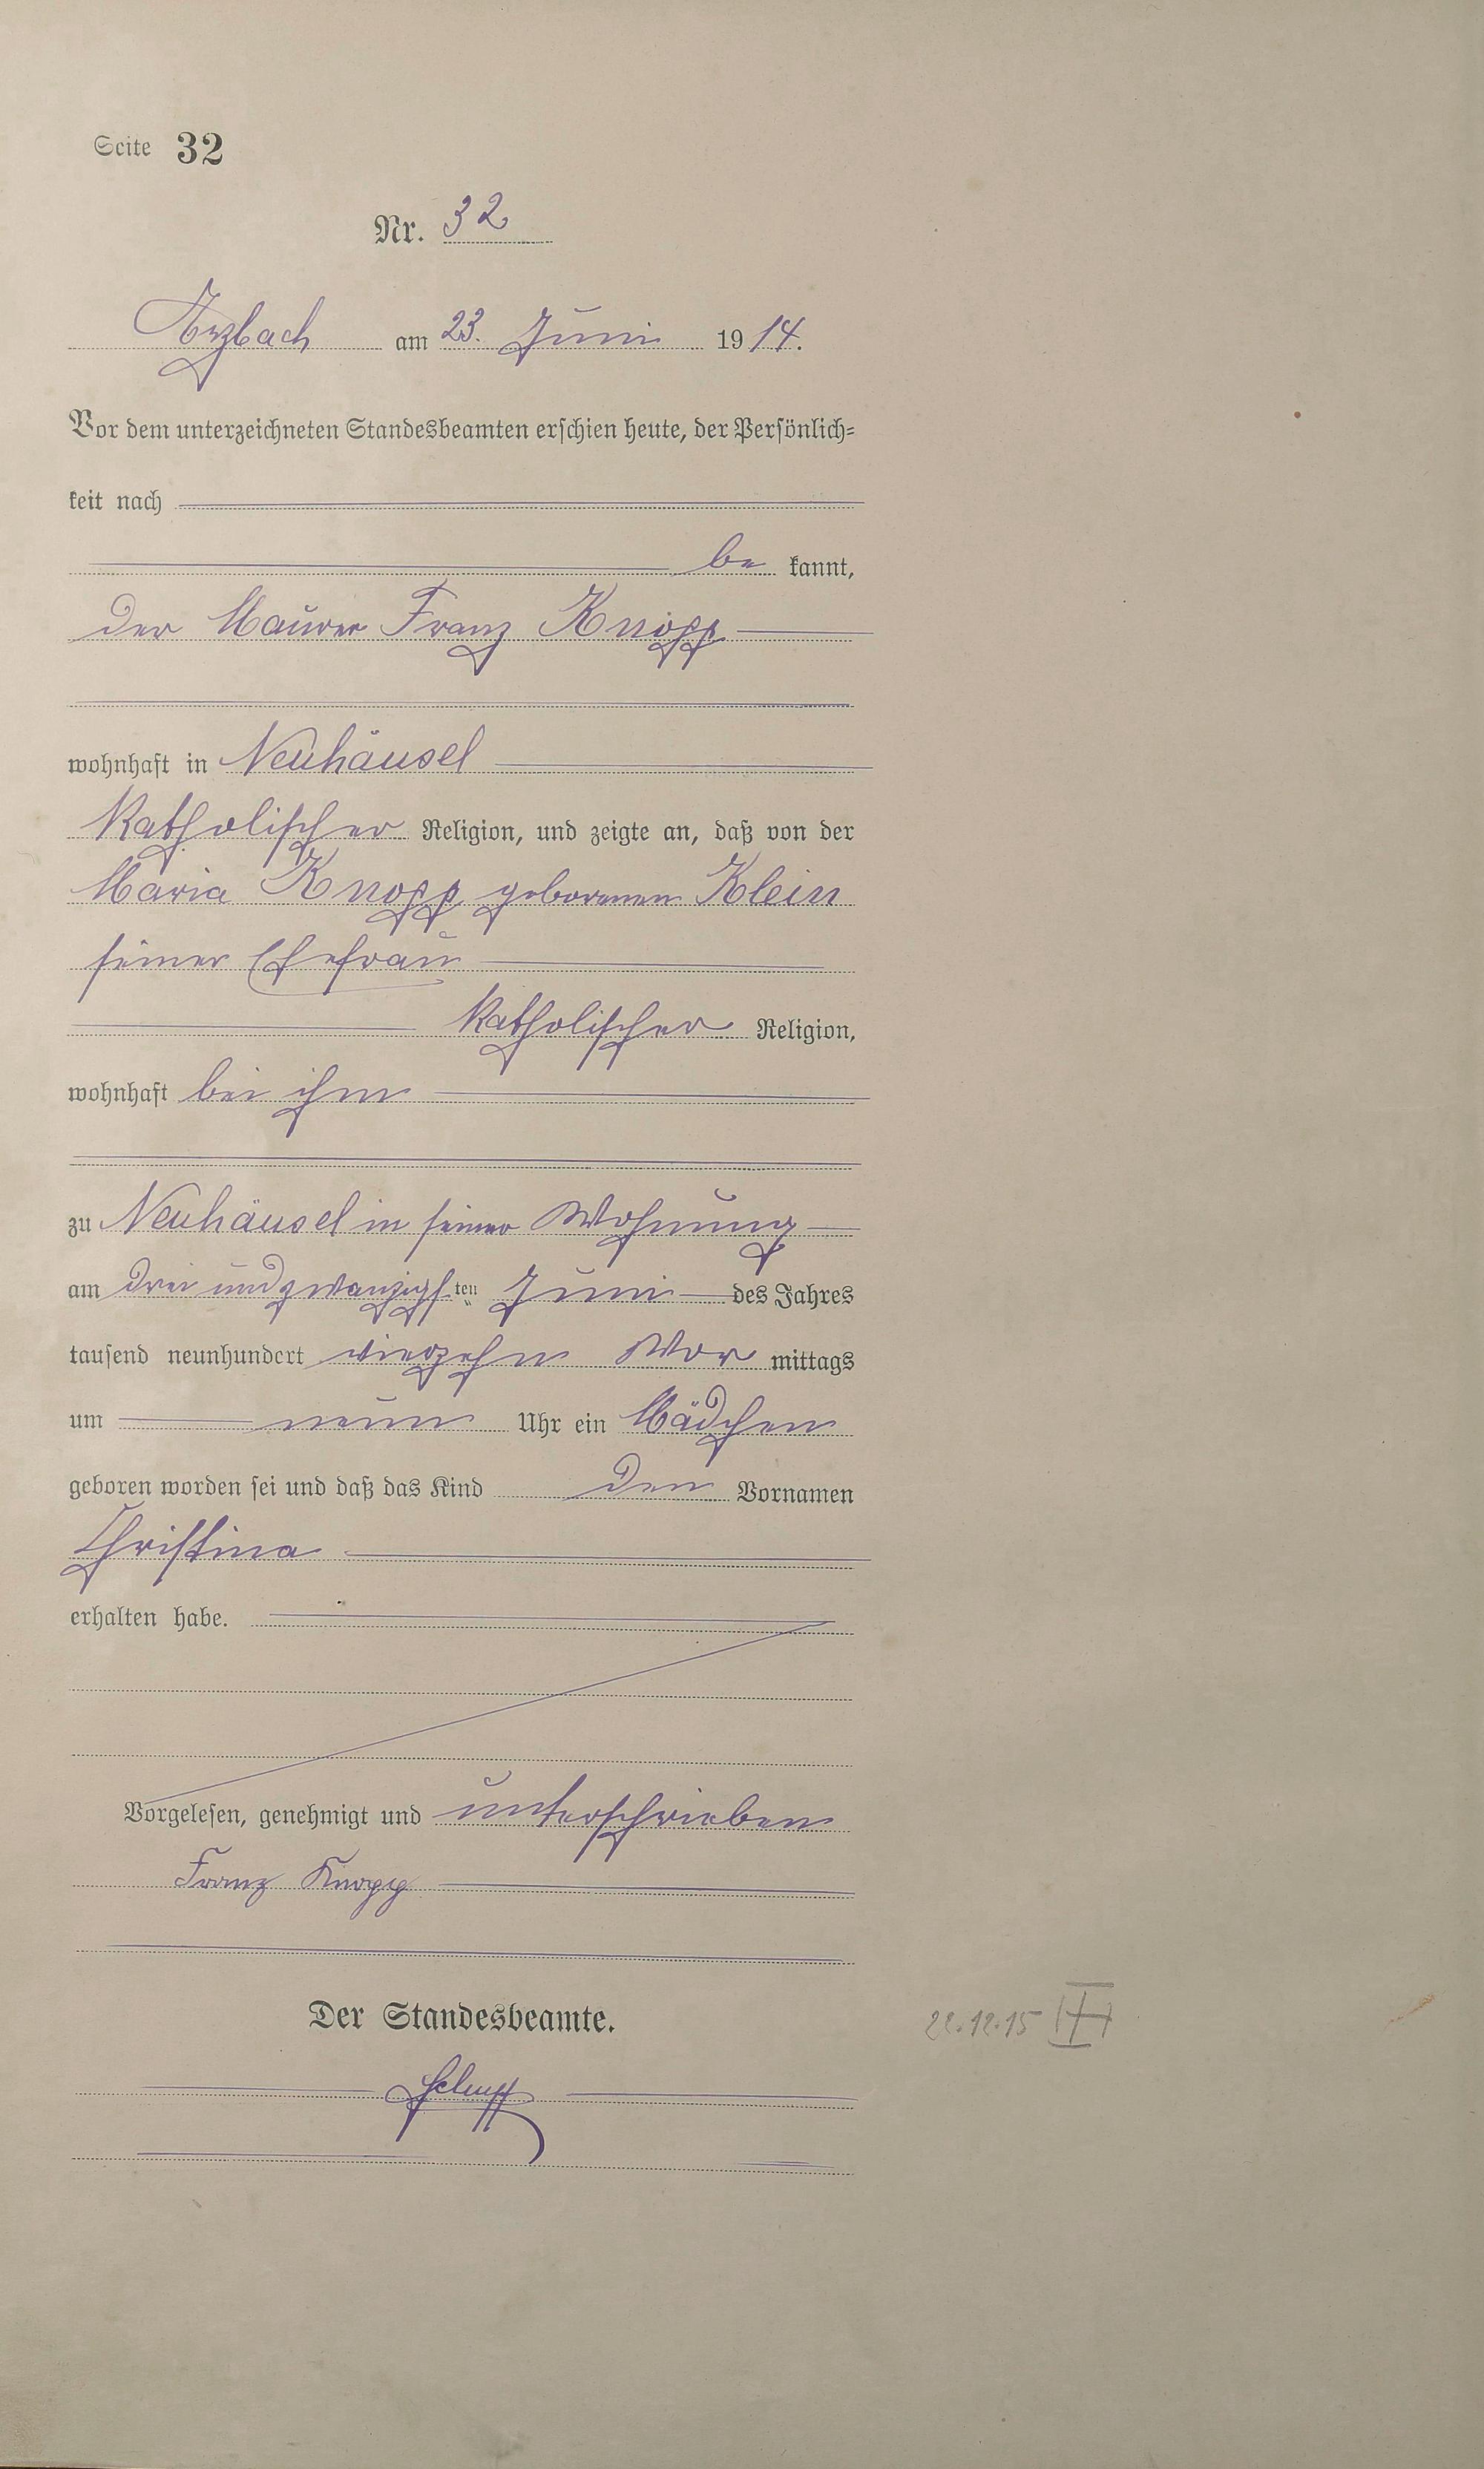 Seite 32
Nr. 32
Arzbach am 23. Juni 1914.
Vor dem unterzeichneten Standesbeamten erschien heute, der Persönlich-
keit nach
be kannt,
der Maurer Franz Knopp
wohnhaft in Neuhäusel
katholischer Religion, und zeigte an, daß von der
Maria Knopp geborenen Klein
seiner Ehefrau
katholischer Religion,
wohnhaft bei ihm
zu Neuhäusel in seiner Wohnung
am drei und zwanzigsten Juni des Jahres
tausend neunhundert vierzehn Vor mittags
um neun Uhr ein Mädchen
geboren worden sei und daß das Kind den Vornamen
Christina
erhalten habe.
Vorgelesen, genehmigt und unterschrieben
Franz Knopp
Der Standesbeamte.
22.12.15